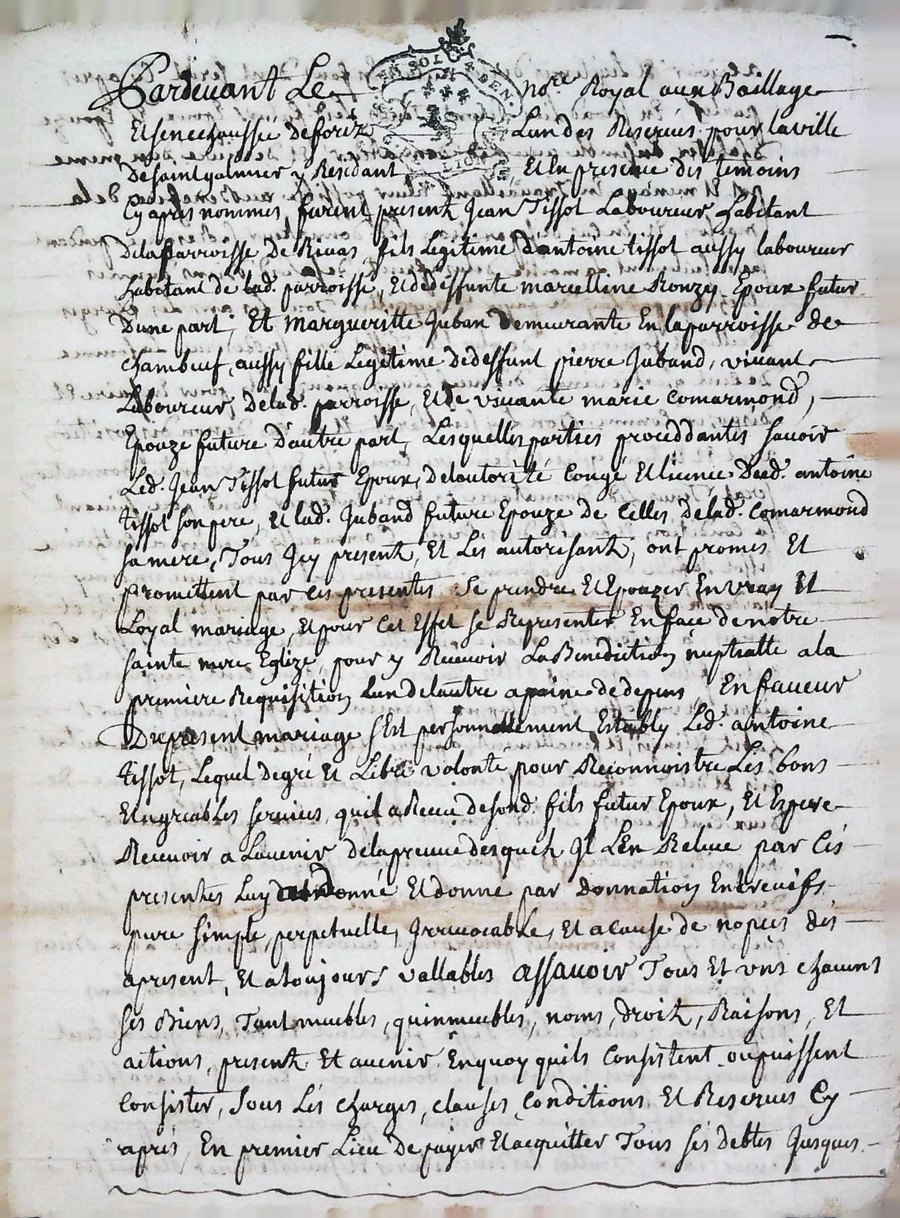 Pardevant Le no.re Royal aux Bailliage
Et senechaussée de forez Lun des Reservés pour la ville
De saint galmier y Residant Et En presence des temoins
Cy apres nommes, furent present Jean Tissot Laboureur habitant
De la parroisse de Rivas fils Legitime d'antoine tissot aussy laboureur
habitant de lad. parroisse, Et de deffunte marcelline Ronzy Epoux futur
Dune part; Et margueritte Juban demeurante En la parroisse de
chambeuf, aussy fille Legitime de deffunt pierre Juband, vivant
Laboureur, de lad. parroisse, Et de vivante marie comarmond,
Epouze future d'autre part, Lesquelles parties proceddantes savoir
Led. Jean Tissot futur Epoux, de lautorité Congé Et licence dud. antoine
tissot son pere, Et lad. Juband future Epouze de Celles de lad. Comarmond
sa mere, Tous Jcy present, Et Les autorisant, ont promis Et
promettent par ces presentes Se prendre Et Epouzer En vray Et
Loyal mariage, Et pour Cet Effet se Representer En face de notre
sainte mere Eglize, pour y Recevoir La Benediction nuptialle a la
premiere Requisition Lun de lautre a paine de depens, En faveur
Du present mariage s'Est personnellement Estably Led. antoine
tissot, Lequel de gré Et Libre volonté pour Reconnoistre Les bons
Et agreables services quil a Recu de sond. fils futur Epoux, Et Espere
Recevoir a Lavenir de la preuve desquels Jl L'En Releve par Cés
presentes Luy donné Et donne par donnation Entre vifs
pure simple, perpetuelle, Jrrevocable, Et a cause de nopces dés
apresent, Et a toujours vallables assavoir Tous Et uns chacuns
ses Biens, Tant meubles, quinmeubles, noms, droits, Raisons, Et
actions, present Et avenir En quoy quils Consistent ou puissent
Consister, sous Les charges, clauses Conditions Et Reserves Cy
aprés, En premier Lieu de payer Et acquitter Tous ses debtes Jusques